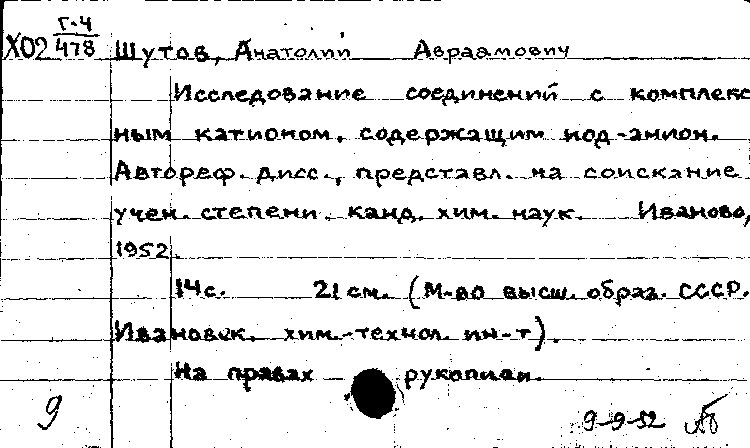 Г-4
Х02 478 Шутов, Анатолий Авраамович
Исследование соединений с комплекс
ным катионом, содержащим иод-анион.
Автореф. дисс., представл. на соискание
учен. степени. канд. хим. наук. Иваново,
1952.
14с. 21 см. (М-во высш. образ. СССР.
Ивановск. хим.-технол. ин-т).
На правах рукописи.
9
9-9-52